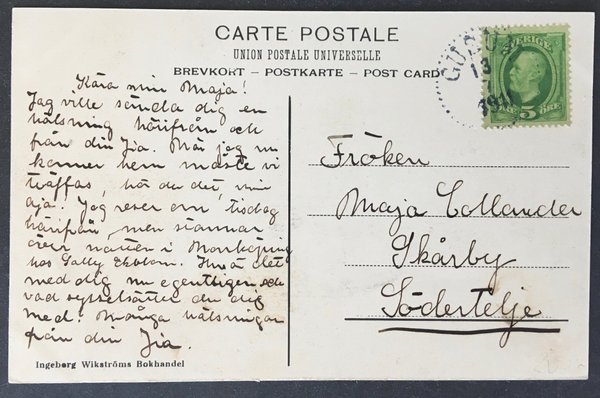 CARTE POSTALE
UNION POSTALE UNIVERSELLE
BREVKORT – POSTKARTE – POST CARD
SVERIGE
5 ÖRE
13
Kära min Maja!
Jag ville sända dig en
hälsning härifrån och
från din Jia. När jag nu
kommer hem måste vi
träffas, hör du det, min
aja! Jag reser om tisdag
härifrån, men stannar
över natten i Norrköping
hos Sally Ekblom. Hur är det
med dig nu egentligen och
vad sysselsätter du dig
med? Många hälsningar
från din Jia.
Fröken
Maja Collander
Skårby
Södertelje
Ingeborg Wikströms Bokhandel